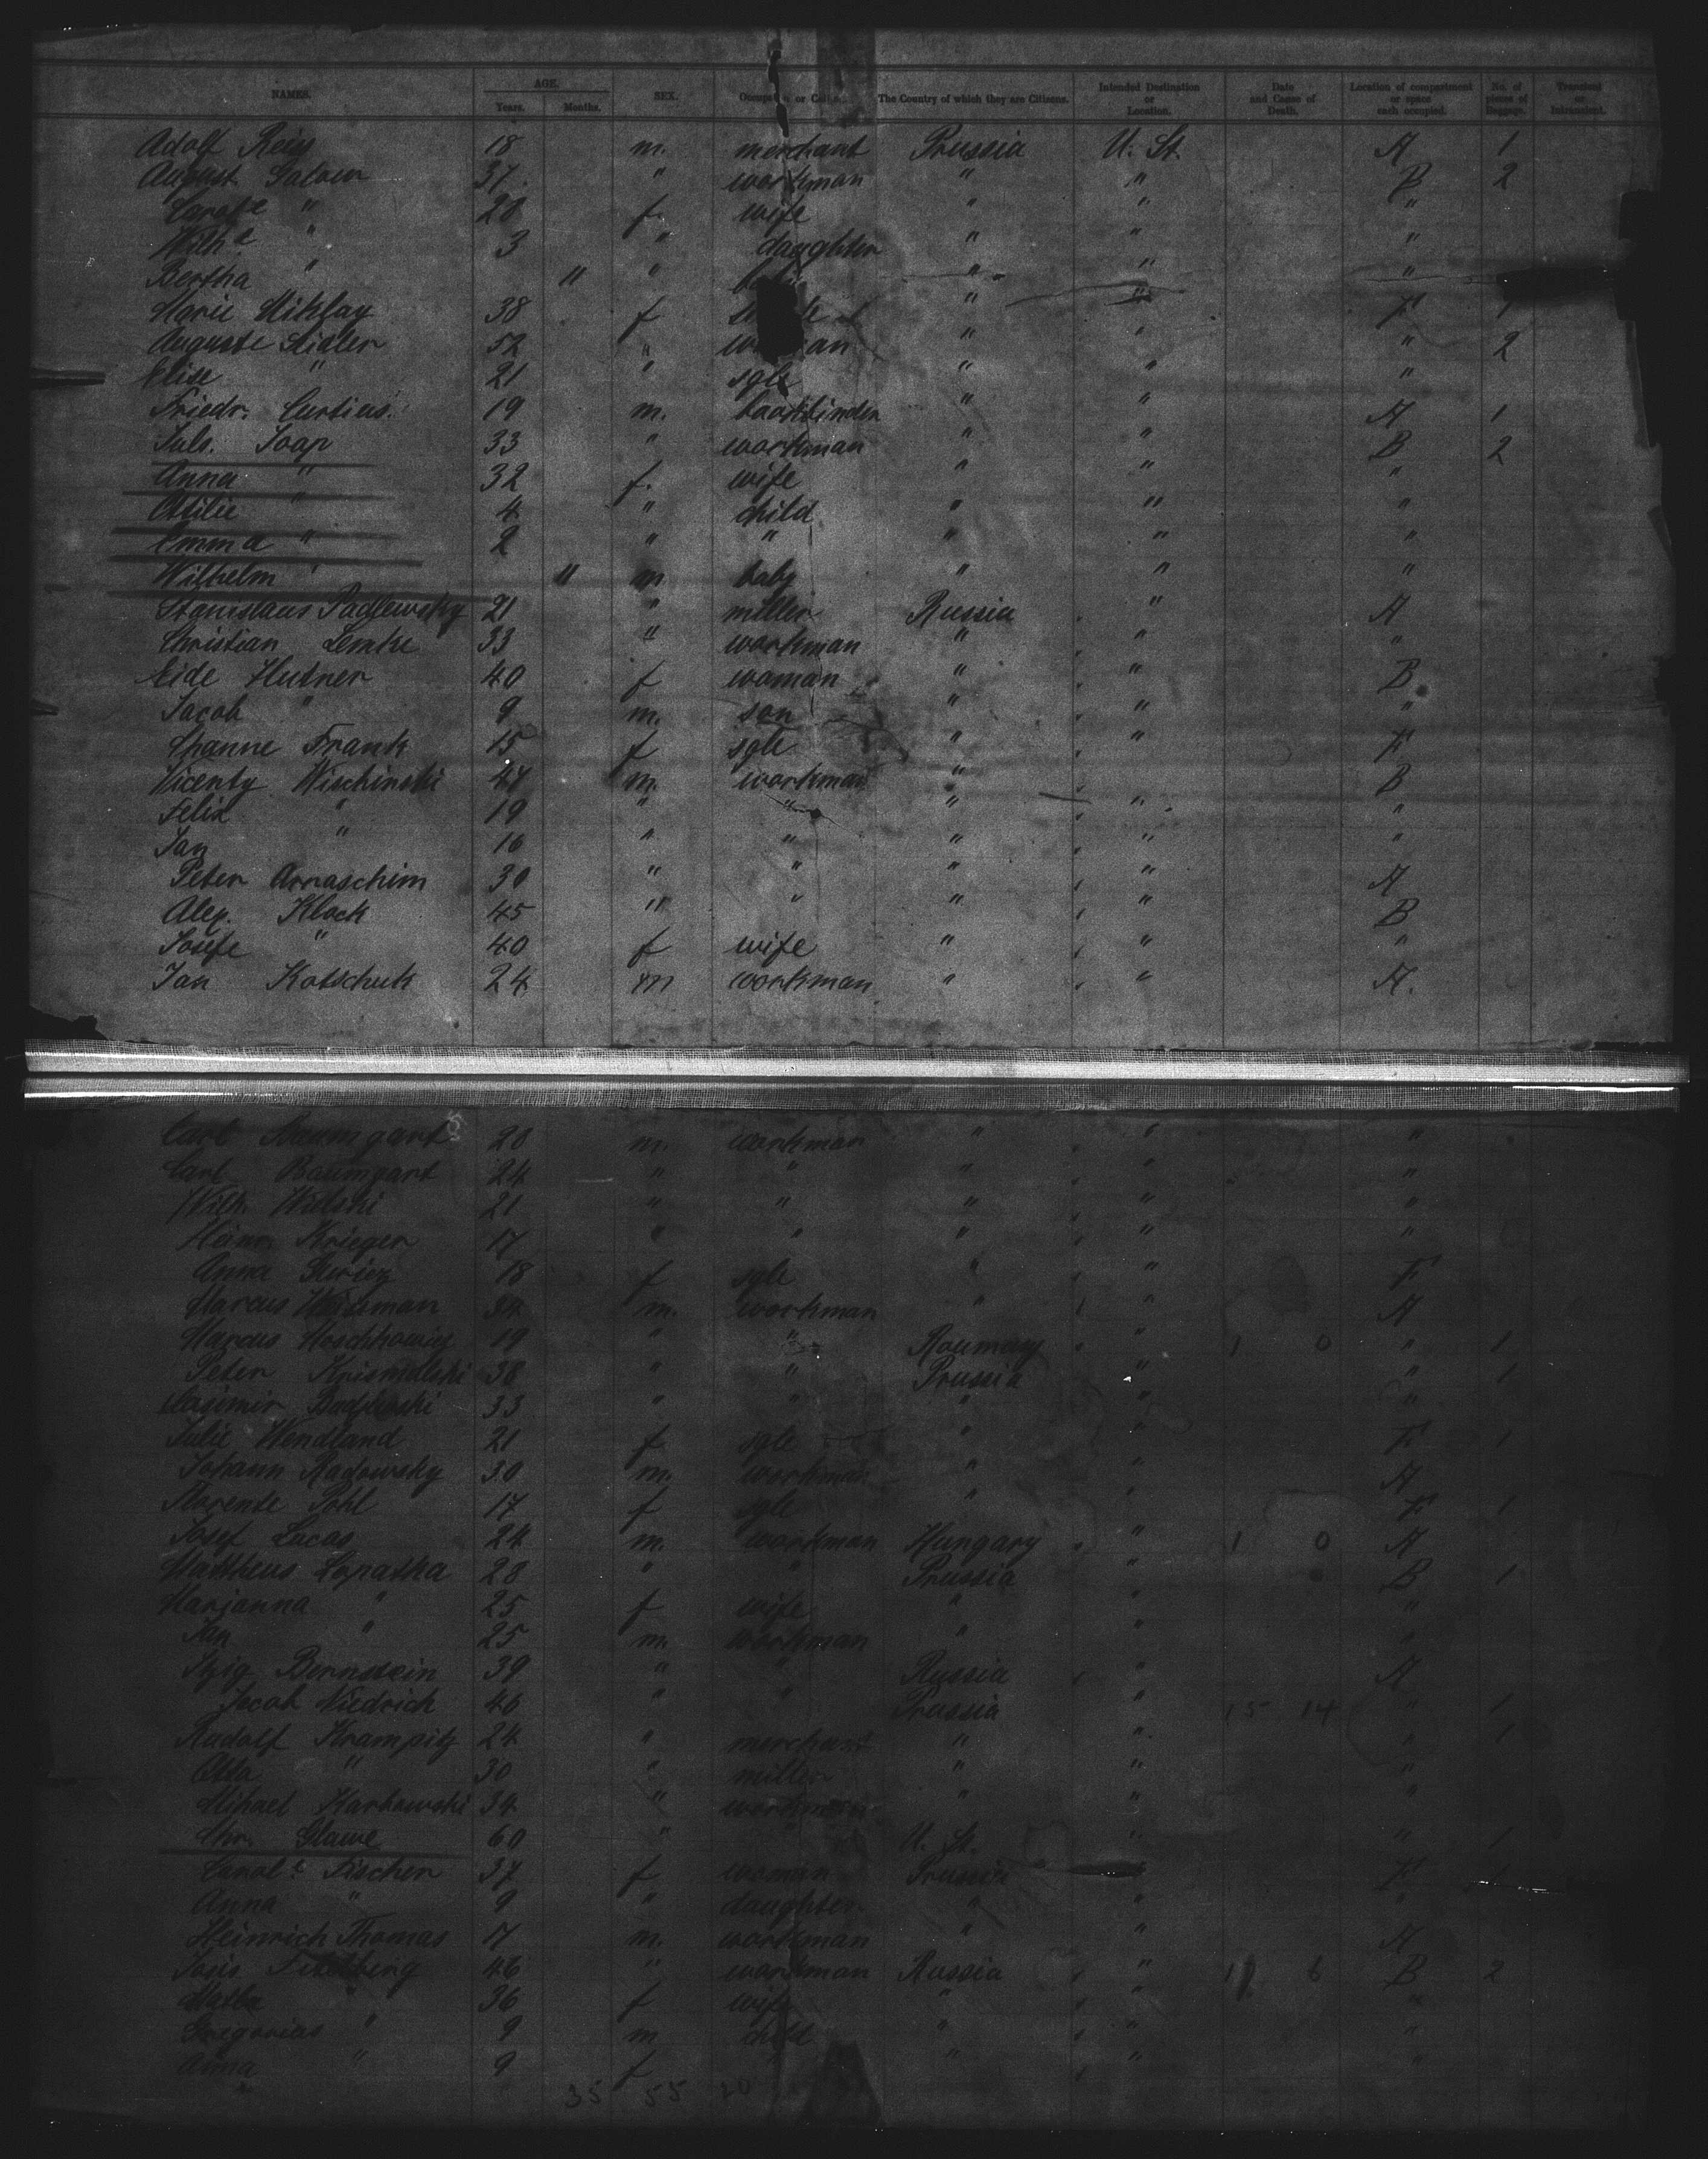 NAMES. AGE. Years. Months. SEX. Occupation or Calling. The Country of which they are Citizens. Intended Destination or Location. Date and Cause of Death. Location of compartment or space each occupied. No. of pieces of Baggage. Transient or Intransient.
Adolf Reiss 18 m. merchant Prussia U. St. A 1
August 37. " workman " " B 2
" 28 f. wife " " "
Wilhe " 3 " daughter " " "
Bertha " 11 " " " "
Marie Miklay 38 f " " F 1
Auguste Sidler 52 " " " " 2
Elise " 21 " sgle " " "
Friedr. Curtius. 19 m. " " A 1
Juls. Soap 33 " workman " " B 2
Anna " 32 f. wife " " "
Ottilie " 4 " child " " "
Emma " 2 " " " " "
Wilhelm " 11 m. baby " " "
Stanislaus Padlewsky 21 " miller Russia " A
Christian Lemke 33 " workman " " "
Eide Hutner 40 f woman " " B
Jacob " 9 m. son " " "
Channe Frank 15 f sgle " " F
Vicenty Wischinski 47 m. workman " " B
Felix " 19 " " " " "
Jan " 16 " " " " "
Peter Arraschim 30 " " " " A
Alex. Klock 45 " " " " B
Josefe " 40 f wife " " "
Jan Kotschuk 24 m workman " " A.
Carl Baumgart 20 m. workman " " "
Carl Baumgart 24 " " " " "
Wilh. Wielski 21 " " " " "
Heinr. Krieger 17 " " " " "
Anna 18 f sgle " " F
Marcus 34 m. workman " " A
Marcus Moschkowitz 19 " " Roumany " 1 0 " 1
Peter 38 " " Prussia " " 1
Casimir 33 " " " " "
Julie Wendland 21 f sgle " " F 1
Johann Radowsky 30 m. workman " " A
Pohl 17 f sgle " " F 1
Josef Lucas 24 m. workman Hungary " 1 0 A
Mattheus Lopatka 28 " " Prussia " B 1
Marjanna " 25 f wife " " "
Jan " 25 m. workman " " "
Bernstein 39 " " Russia " A
Jacob Niedrich 46 " Prussia " 15 14 " 1
Rudolf Krampitz 24 " merchant " " " 1
Otto " 30 " miller " " "
Mihael Karkowski 34 " workman " " "
Chr. Glawe 60 " U. St. " " 1
Carole Fischer 37 f woman Prussia " F 1
Anna " 9 " daughter " " "
Heinrich Thomas 17 m. workman " " A
46 " workman Russia " 6 B 2
36 f wife " " "
Gregorius " 9 m child " " "
Anna " 9 f " " "
35 55 20